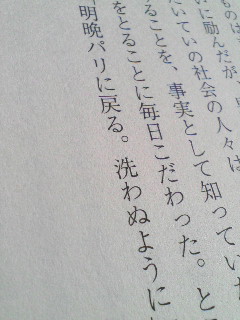 ものは
いに励んだが、
たいていの社会の人々は
ることを、事実として知っていた
をとることに毎日こだわった。と
明晩パリに戻る。洗わぬように